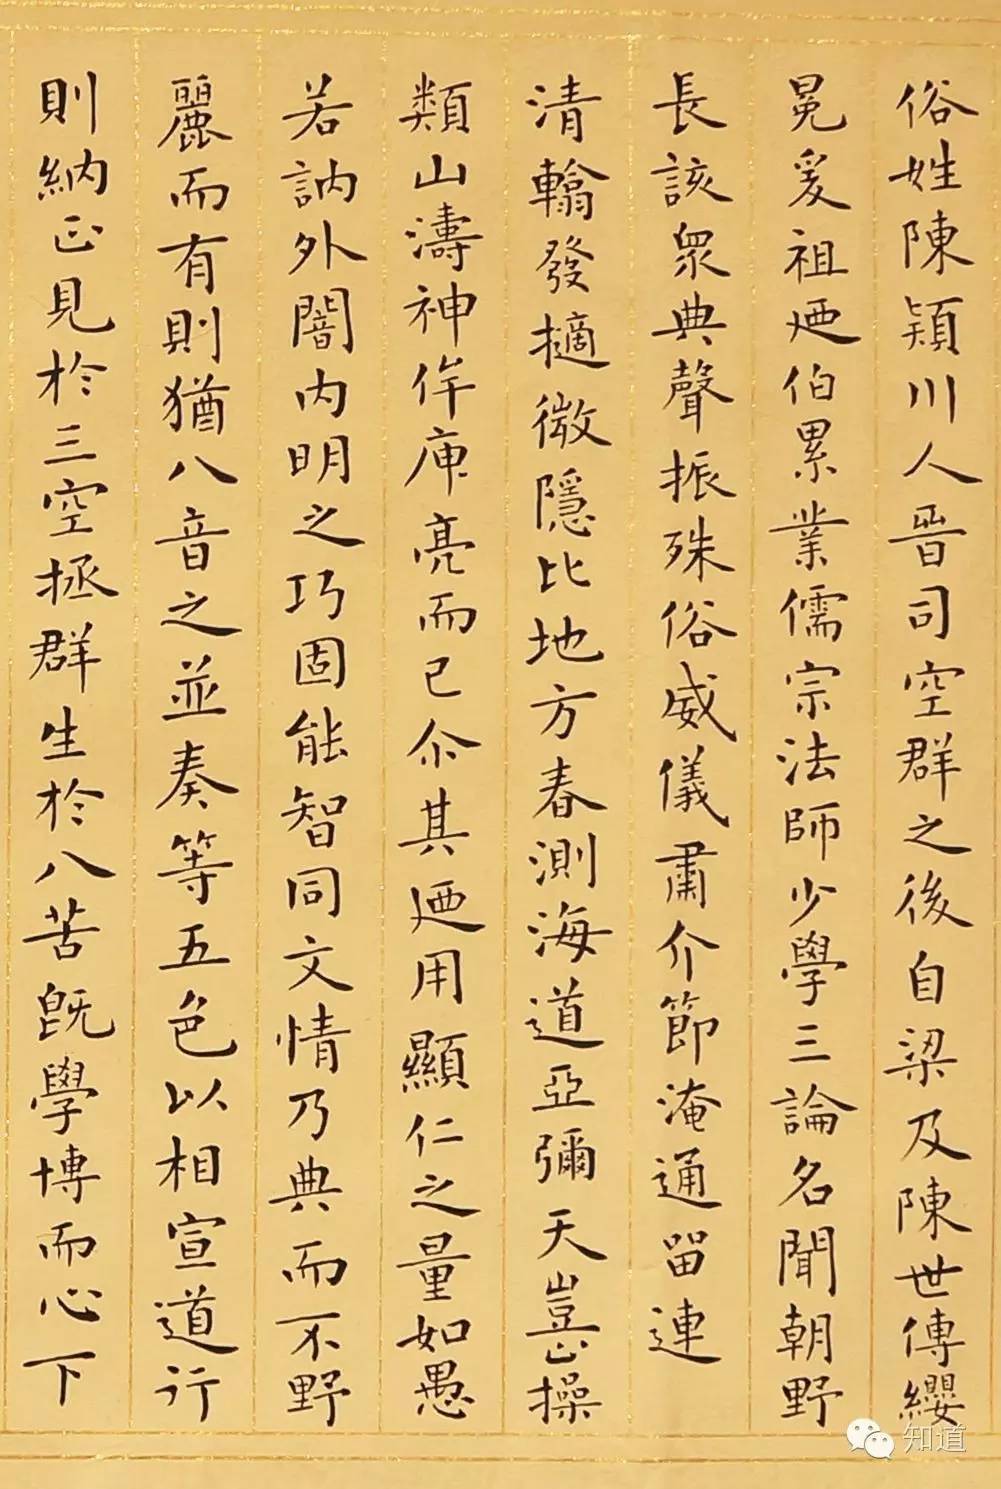 俗姓陳潁川人晉司空群之後自梁及陳世傳纓
冕爰祖廼伯累業儒宗法師少學三論名聞朝野
長該衆典聲振殊俗威儀肅介節淹通留連
清翰發擿微隱比地方春測海道亞彌天豈止操
類山濤神侔庾亮而已尒其廼用顯仁之量如愚
若訥外闇內明之巧固能智同文情乃典而不野
麗而有則猶八音之並奏等五色以相宣道行
則納正見於三空拯群生於八苦旣學博而心下
知道